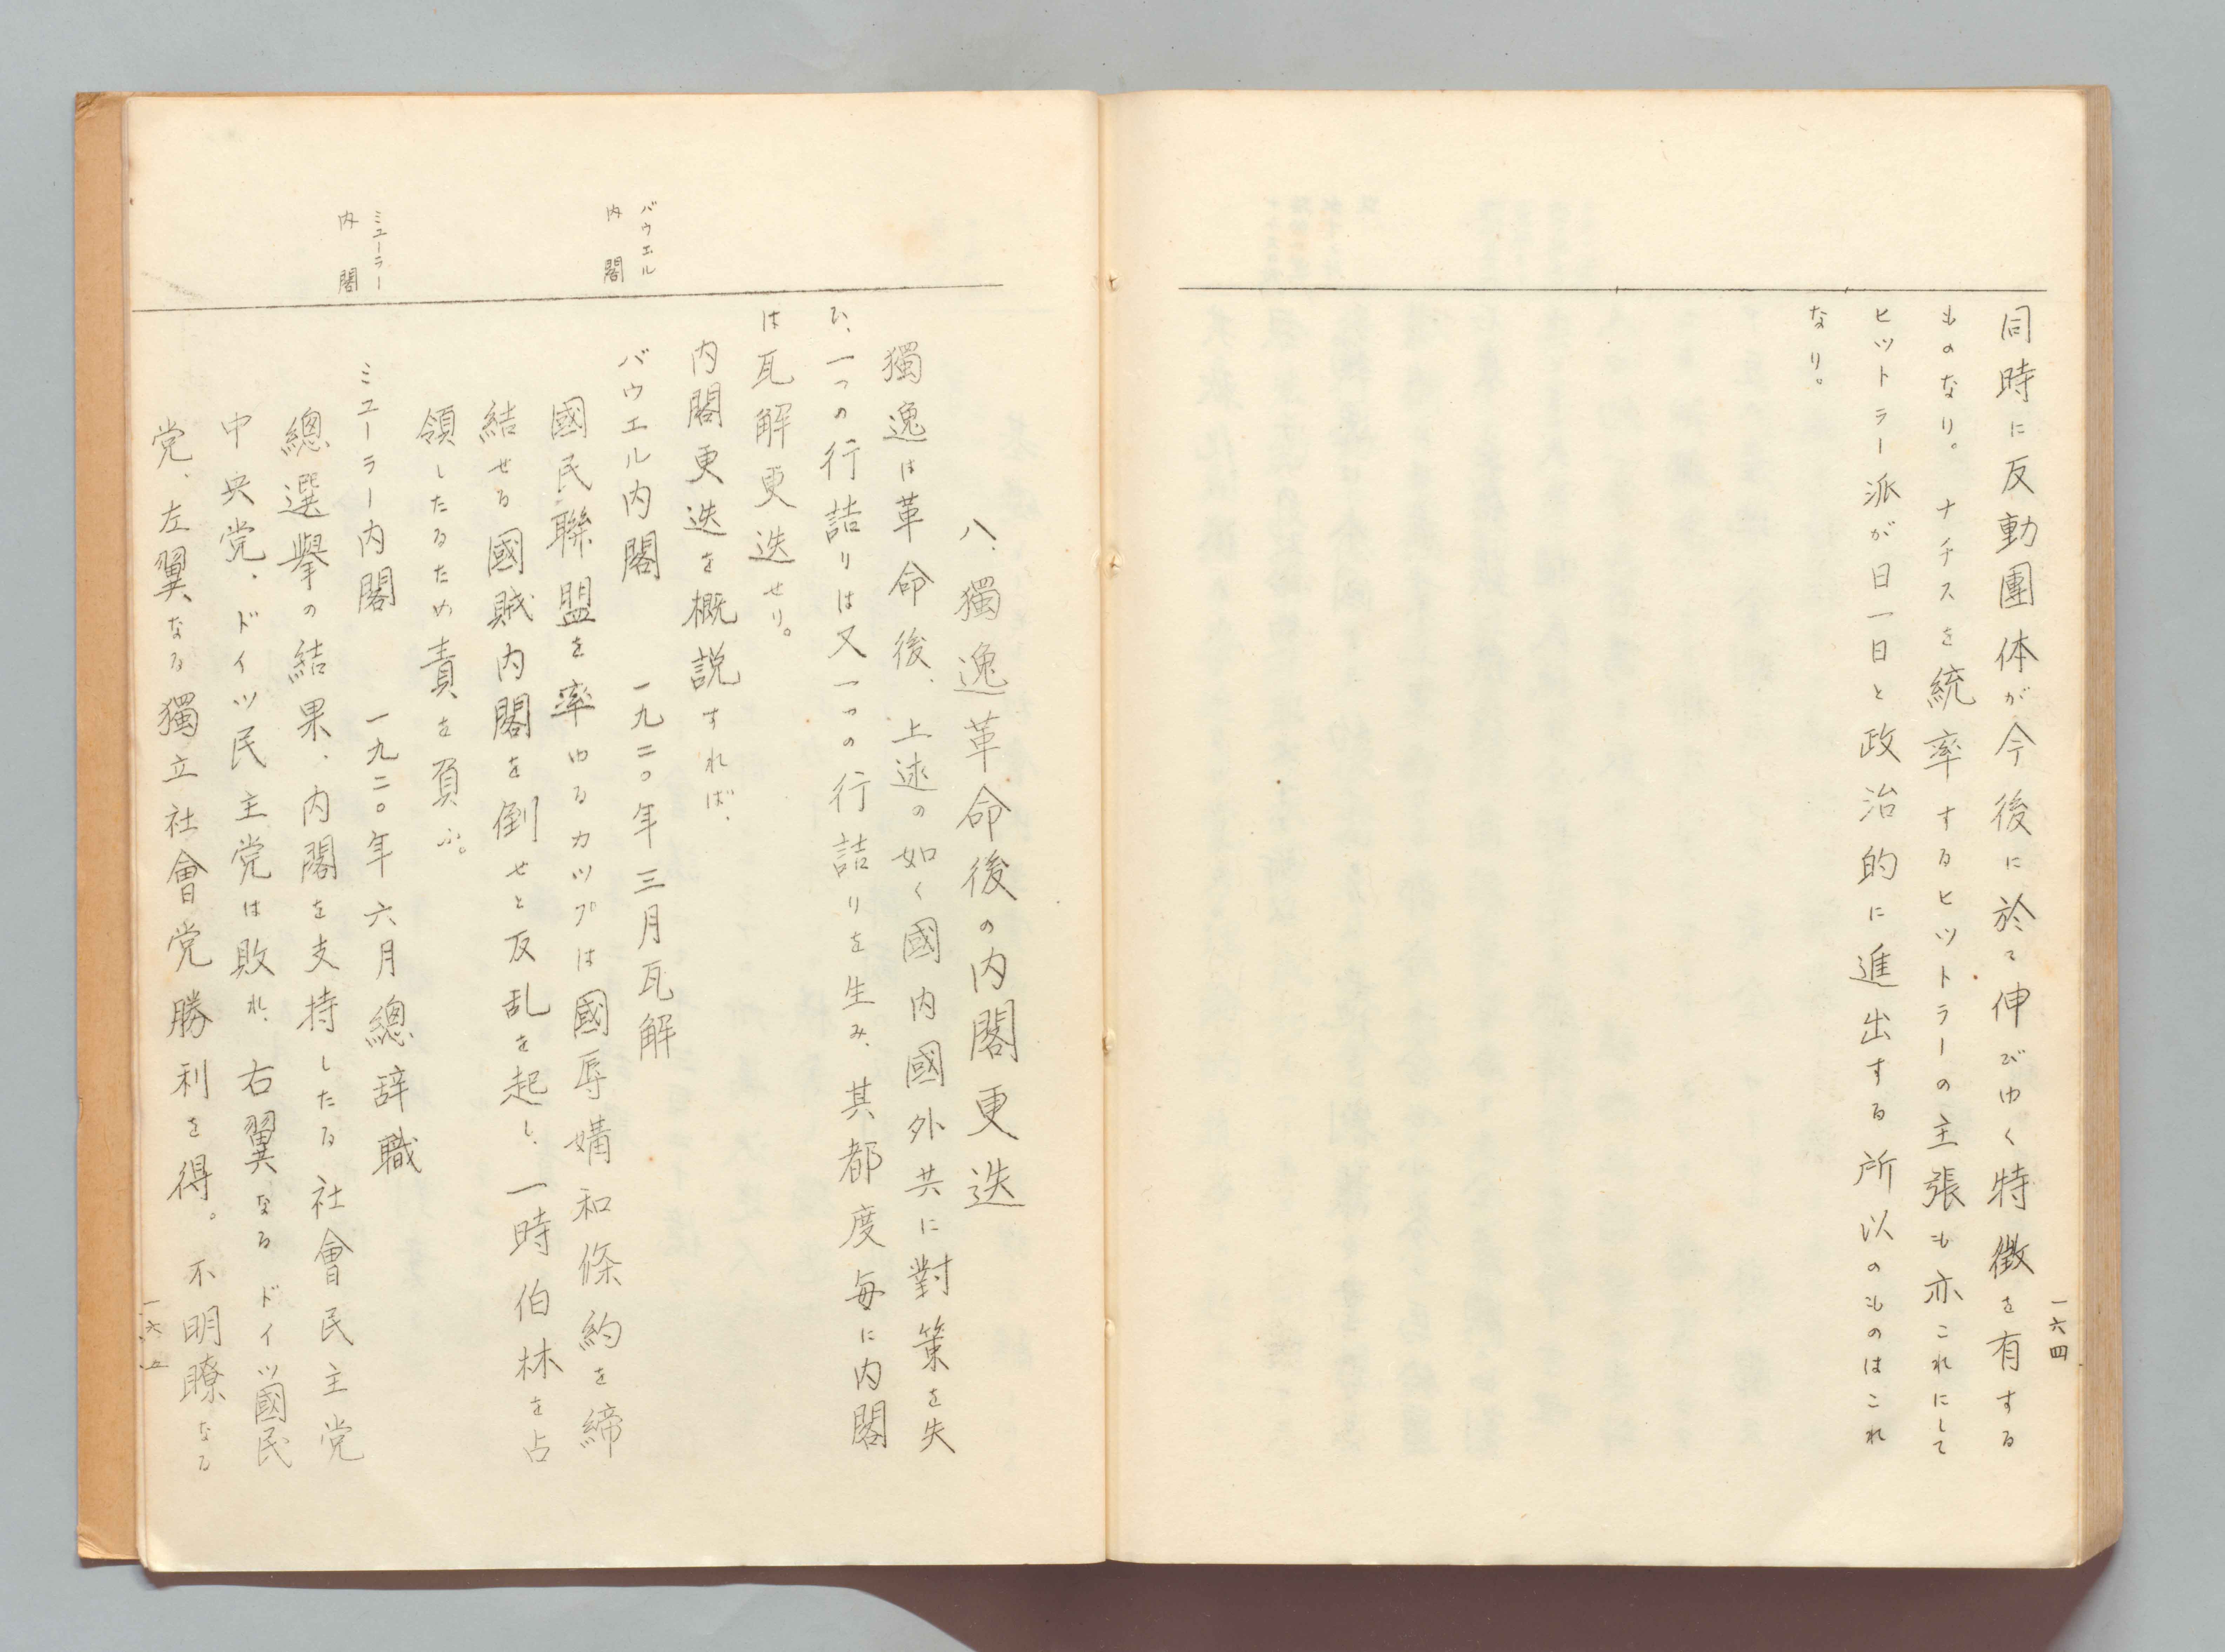 同時に反動團体が今後に於て伸びゆく特徴を有する
ものなり。ナチスを統率するヒットラーの主張も亦これにして
ヒットラー派が日一日と政治的に進出する所以のものはこれ
なり。
一六四
八、獨逸革命後の内閣更迭
獨逸は革命後、上述の如く國内國外共に對策を失
ひ、一つの行詰りは又一つの行詰りを生み、其都度毎に内閣
は瓦解更迭せり。
内閣更迭を概説すれば、
バウエル
内閣
バウエル内閣 一九二〇年三月瓦解
國民聯盟を率ゆるカツプは國辱媾和條約を締
結せる國賊内閣を倒せと反乱を起し、一時伯林を占
領したるため責を負ふ。
ミユーラー
内閣
ミユーラー内閣 一九二〇年六月總辞職
總選擧の結果、内閣を支持したる社會民主党
中央党、ドイツ民主党は敗れ、右翼なるドイツ國民
党、左翼なる獨立社會党勝利を得。不明瞭なる
一六五